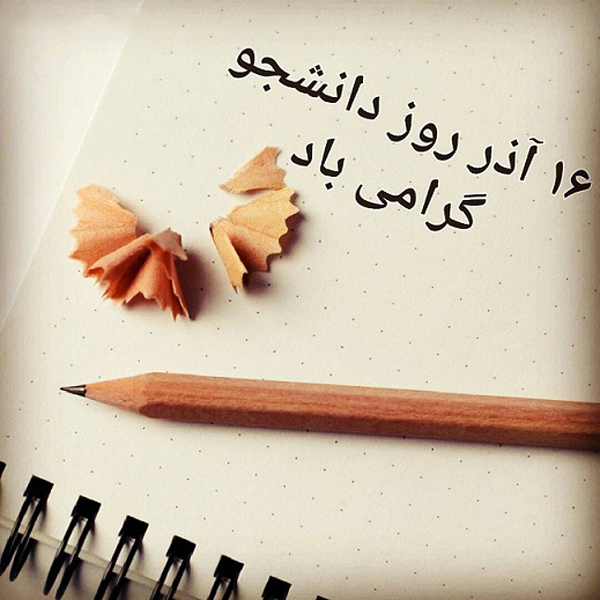 ۱۶ آذر روز دانشجو
گرامی باد